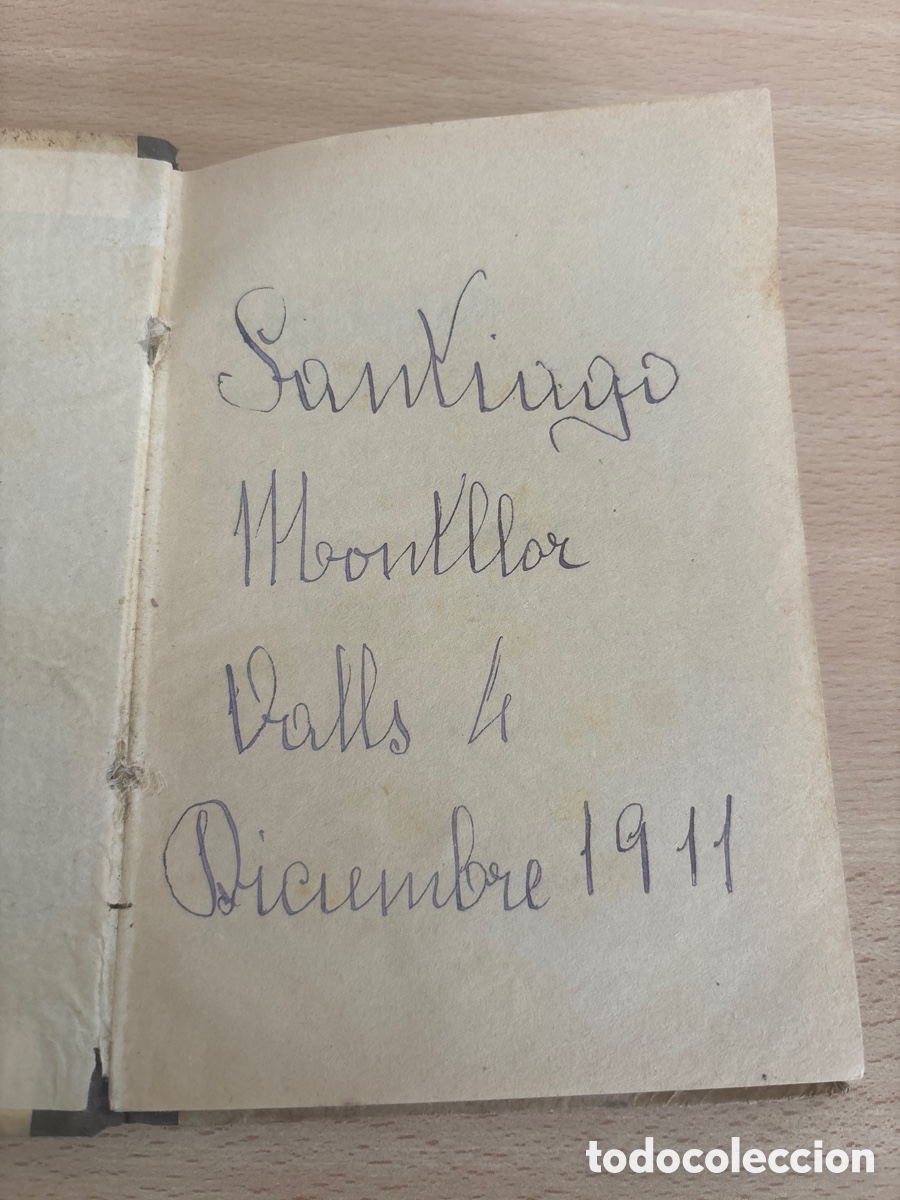 Santiago
Montllor
Valls 4
Diciembre 1911
todocoleccion